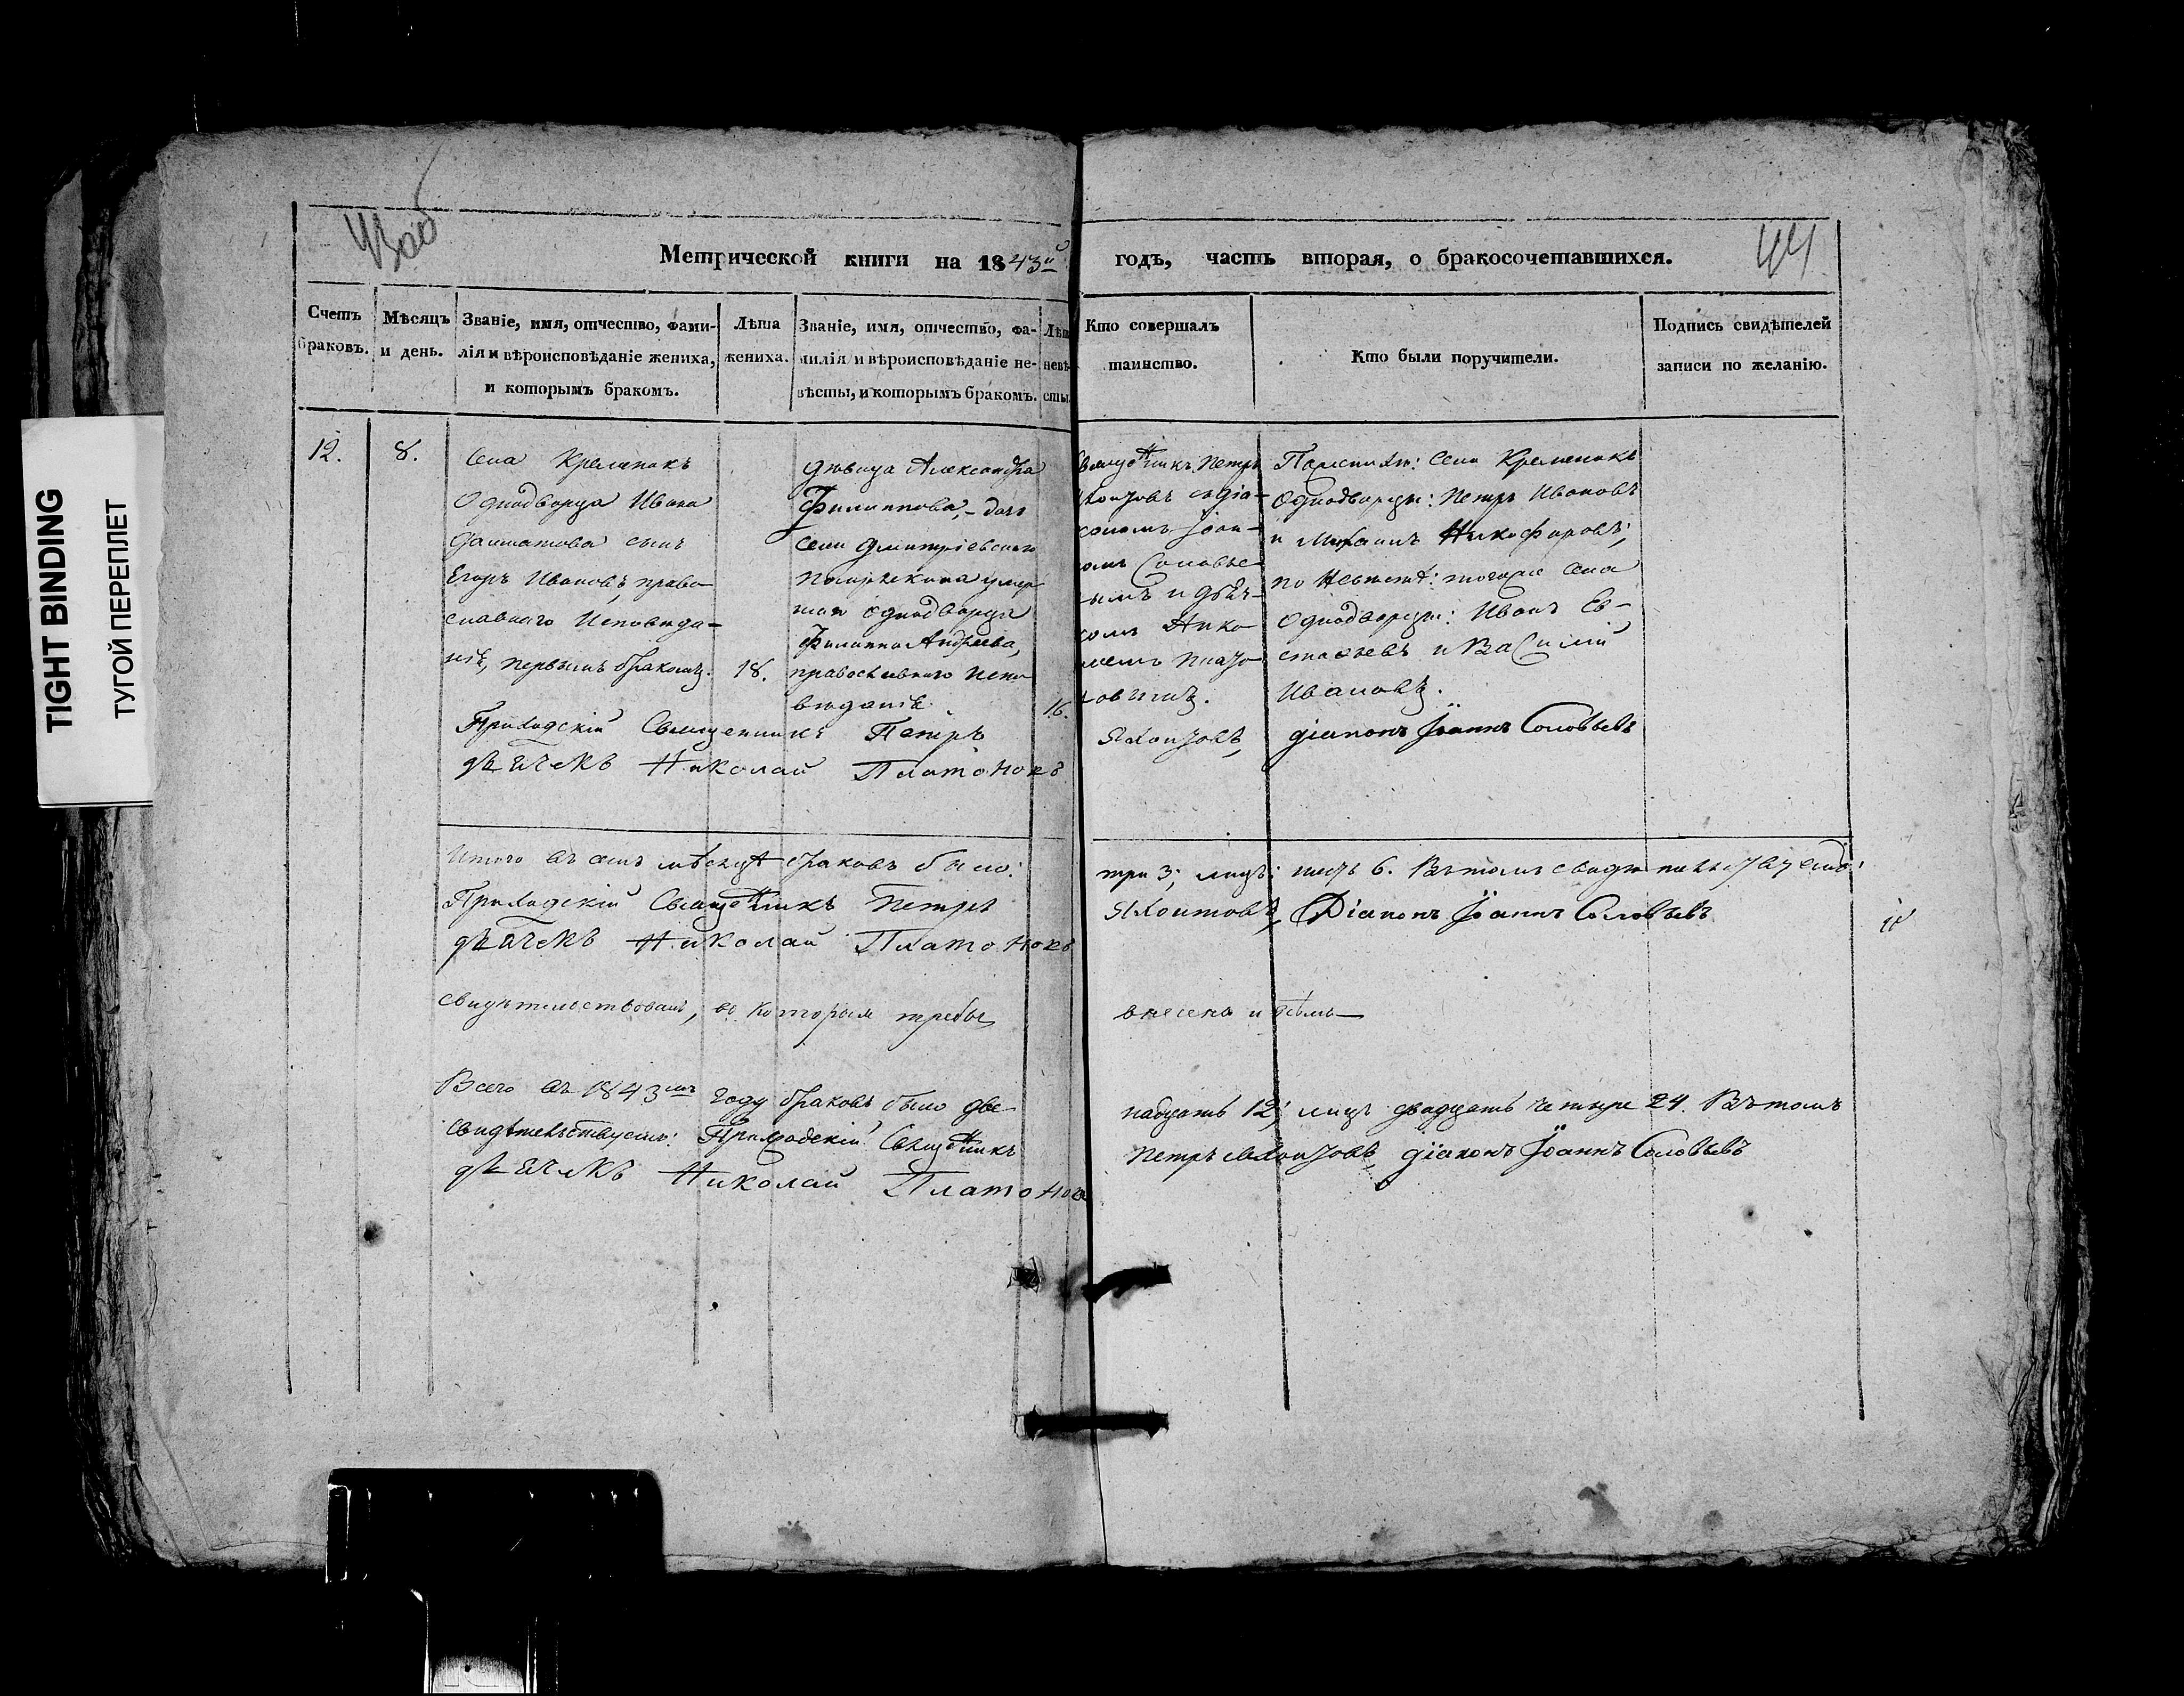 TIGHT BINDING
ТУГОЙ ПЕРЕПЛЕТ
43об
44
Метрической книги на 1843й годъ, часть вторая, о бракосочетавшихся.
Счетъ браковъ.
Мѣсяцъ и день.
Званіе, имя, отчество, фами-
лія и вѣроисповѣданіе жениха,
и которымъ бракомъ.
Лѣта
жениха.
Званіе, имя, отчество, фа-
милія и вѣроисповѣданіе не-
вѣсты, и которымъ бракомъ.
Лѣт
невѣ-
сты.
Кто совершалъ
таинство.
Кто были поручители.
Подпись свидѣтелей
записи по желанію.
12.
8.
Села Кременокъ
Однодворца Ивана
сынъ
Егоръ Ивановъ, право-
славнаго Исповѣда-
нія, первымъ бракомъ.
18.
дѣвица Александра
Филиппова, дочь
села Дмитріевскаго
умер
шаго однодворца
Филиппа Андреева,
православнаго испо
вѣданія
16.
Священникъ Петръ
съ діа-
кономъ Іоан-
омъ Соловье-
вымъ и дьяч-
комъ Нико
лаемъ Плато
новымъ.
По женихѣ: села Кременокъ
Однодворцы: Петръ Ивановъ
и Михаилъ Никифоровъ;
по невѣстѣ: тогоже села
Однодворцы: Иванъ Ев-
стафьевъ и Василій
Ивановъ.
Приходскій Священникъ Петръ діаконъ Іоаннъ Соловьевъ
дьячекъ Николай Платоновъ
Итого въ семъ мѣсяцѣ браковъ было: три 3; лицъ: шесть 6. Въ томъ свидѣтельствуемъ:
Приходскій Священникъ Петръ Діаконъ Іоаннъ Соловьевъ
дьячекъ Николай Платоновъ
свидѣтельствовалъ, въ которыя требы внесены и
Всего въ 1843мъ году браковъ было две надцать 12; лицъ двадцать четыре 24. Въ томъ
свидѣтельствуемъ: Приходскій Священникъ Петръ діаконъ Іоаннъ Соловьевъ
дьячекъ Николай Платоновъ